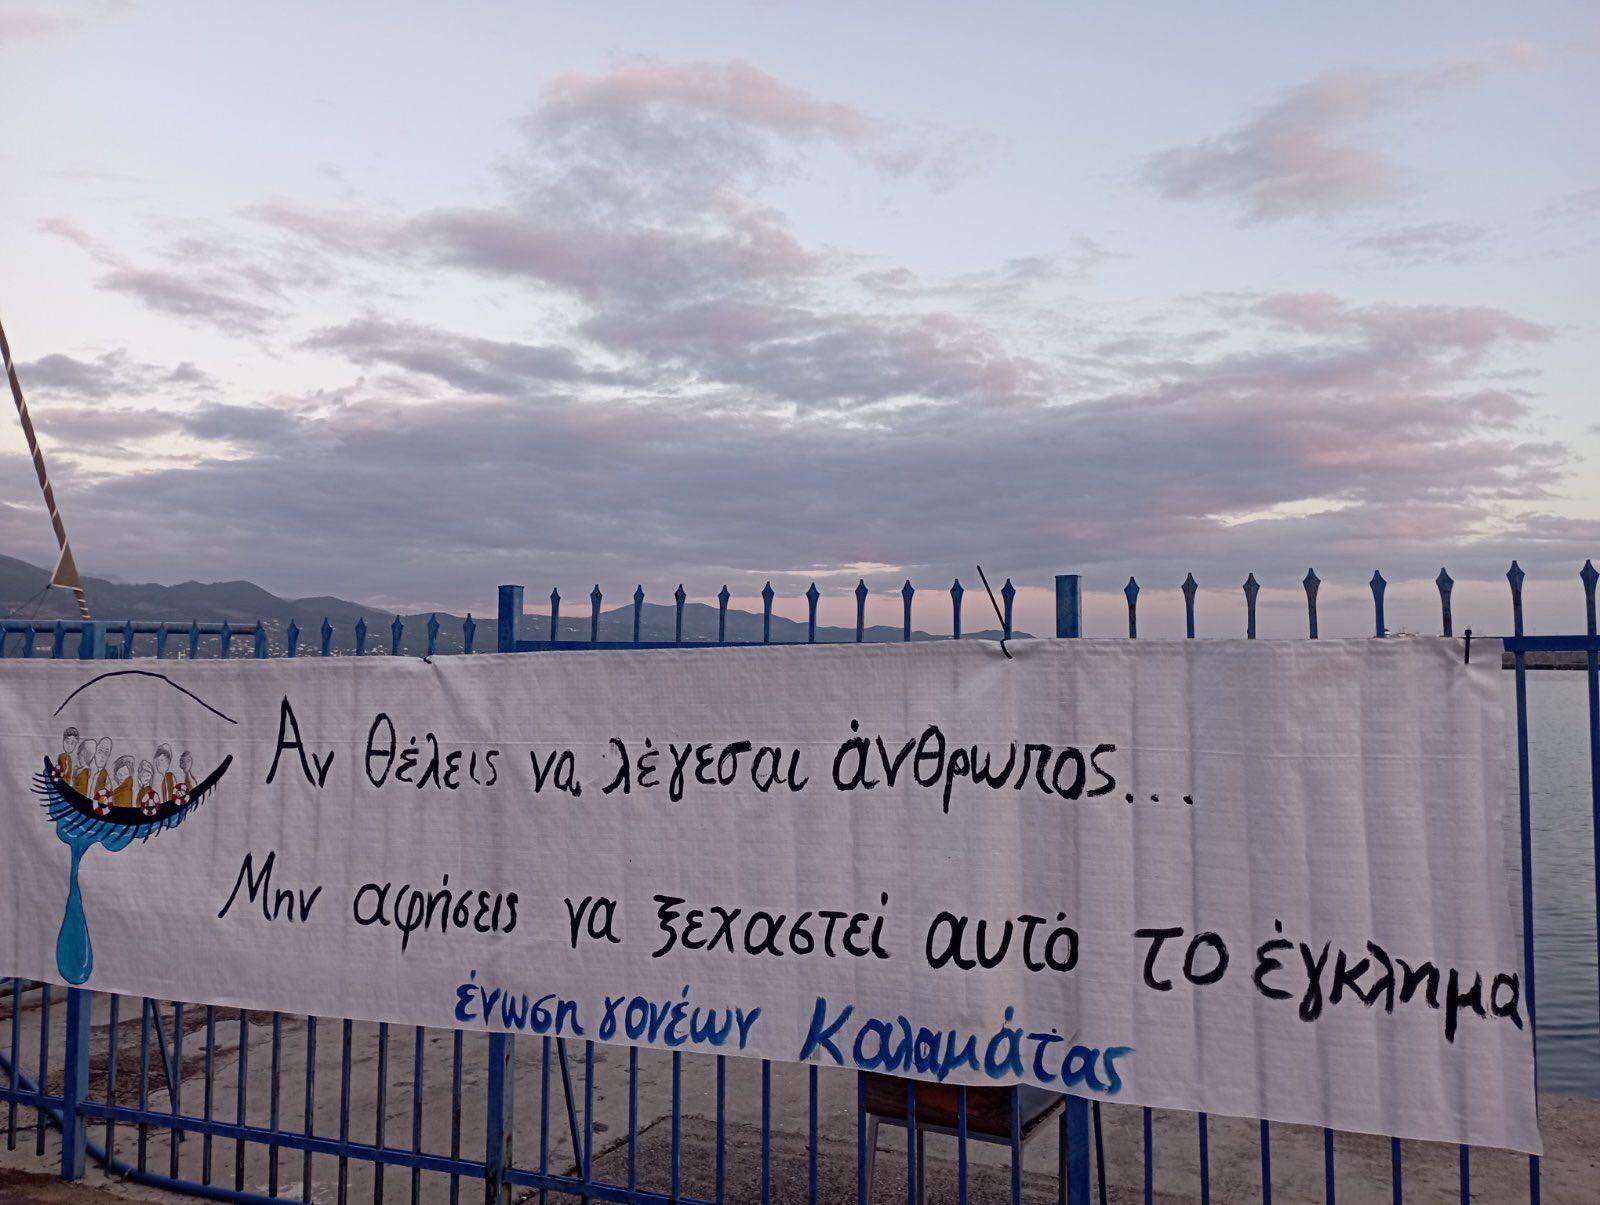 Αν θέλεις να λέγεσαι άνθρωπος...
Μην αφήσεις να ξεχαστεί αυτό το έγκλημα
ένωση γονέων Καλαμάτας